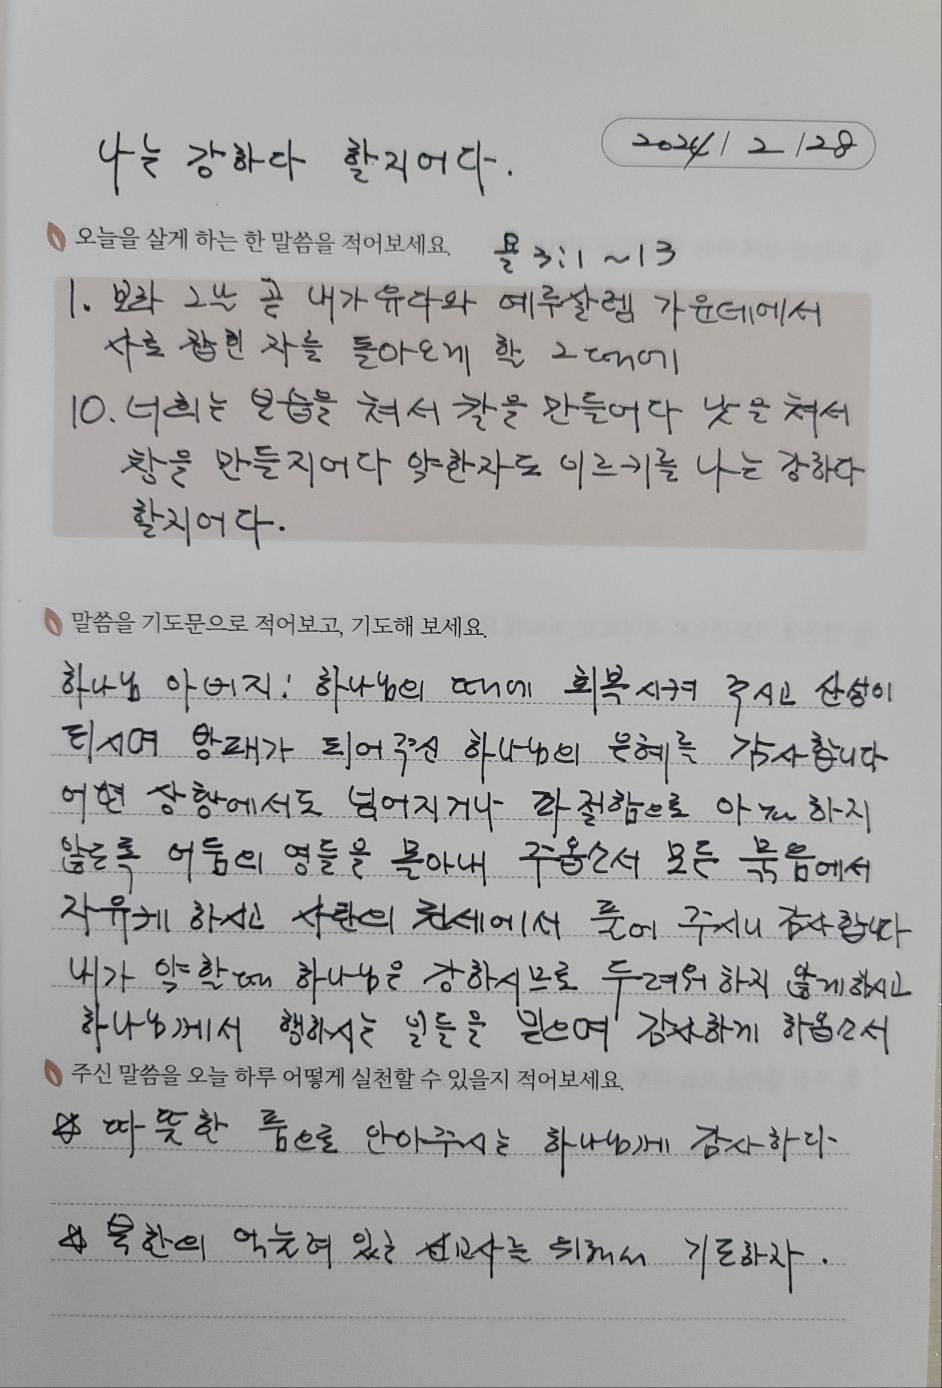 나는 강하다 할지어다.
2024/ 2 /28
오늘을 살게 하는 한 말씀을 적어보세요.
욜 3:1~13
1. 보라 그날 곧 내가 유다와 예루살렘 가운데에서
사로 잡힌 자를 돌아오게 할 그 때에
10. 너희는 보습을 쳐서 칼을 만들어다 낫을 쳐서
창을 만들지어다 약한자도 이르기를 나는 강하다
할지어다.
말씀을 기도문으로 적어보고, 기도해 보세요.
하나님 아버지! 하나님의 때에 회복시켜 주시고 산성이
되시며 방패가 되어주신 하나님의 은혜를 감사합니다
어떤 상황에서도 넘어지거나 좌절함으로 아파하지
않도록 어둠의 영들을 몰아내 주옵소서 모든 묶음에서
자유케 하시고 사탄의 권세에서 풀어 주시니 감사합니다
내가 약할때 하나님은 강하시므로 두려워하지 않게하시고
하나님께서 행하시는 일들을 믿으며 감사하게 하옵소서
주신 말씀을 오늘 하루 어떻게 실천할 수 있을지 적어보세요.
☆ 따뜻한 품으로 안아주시는 하나님께 감사하다
☆ 북한의 억눌려 있는 선교사를 위해서 기도하자.